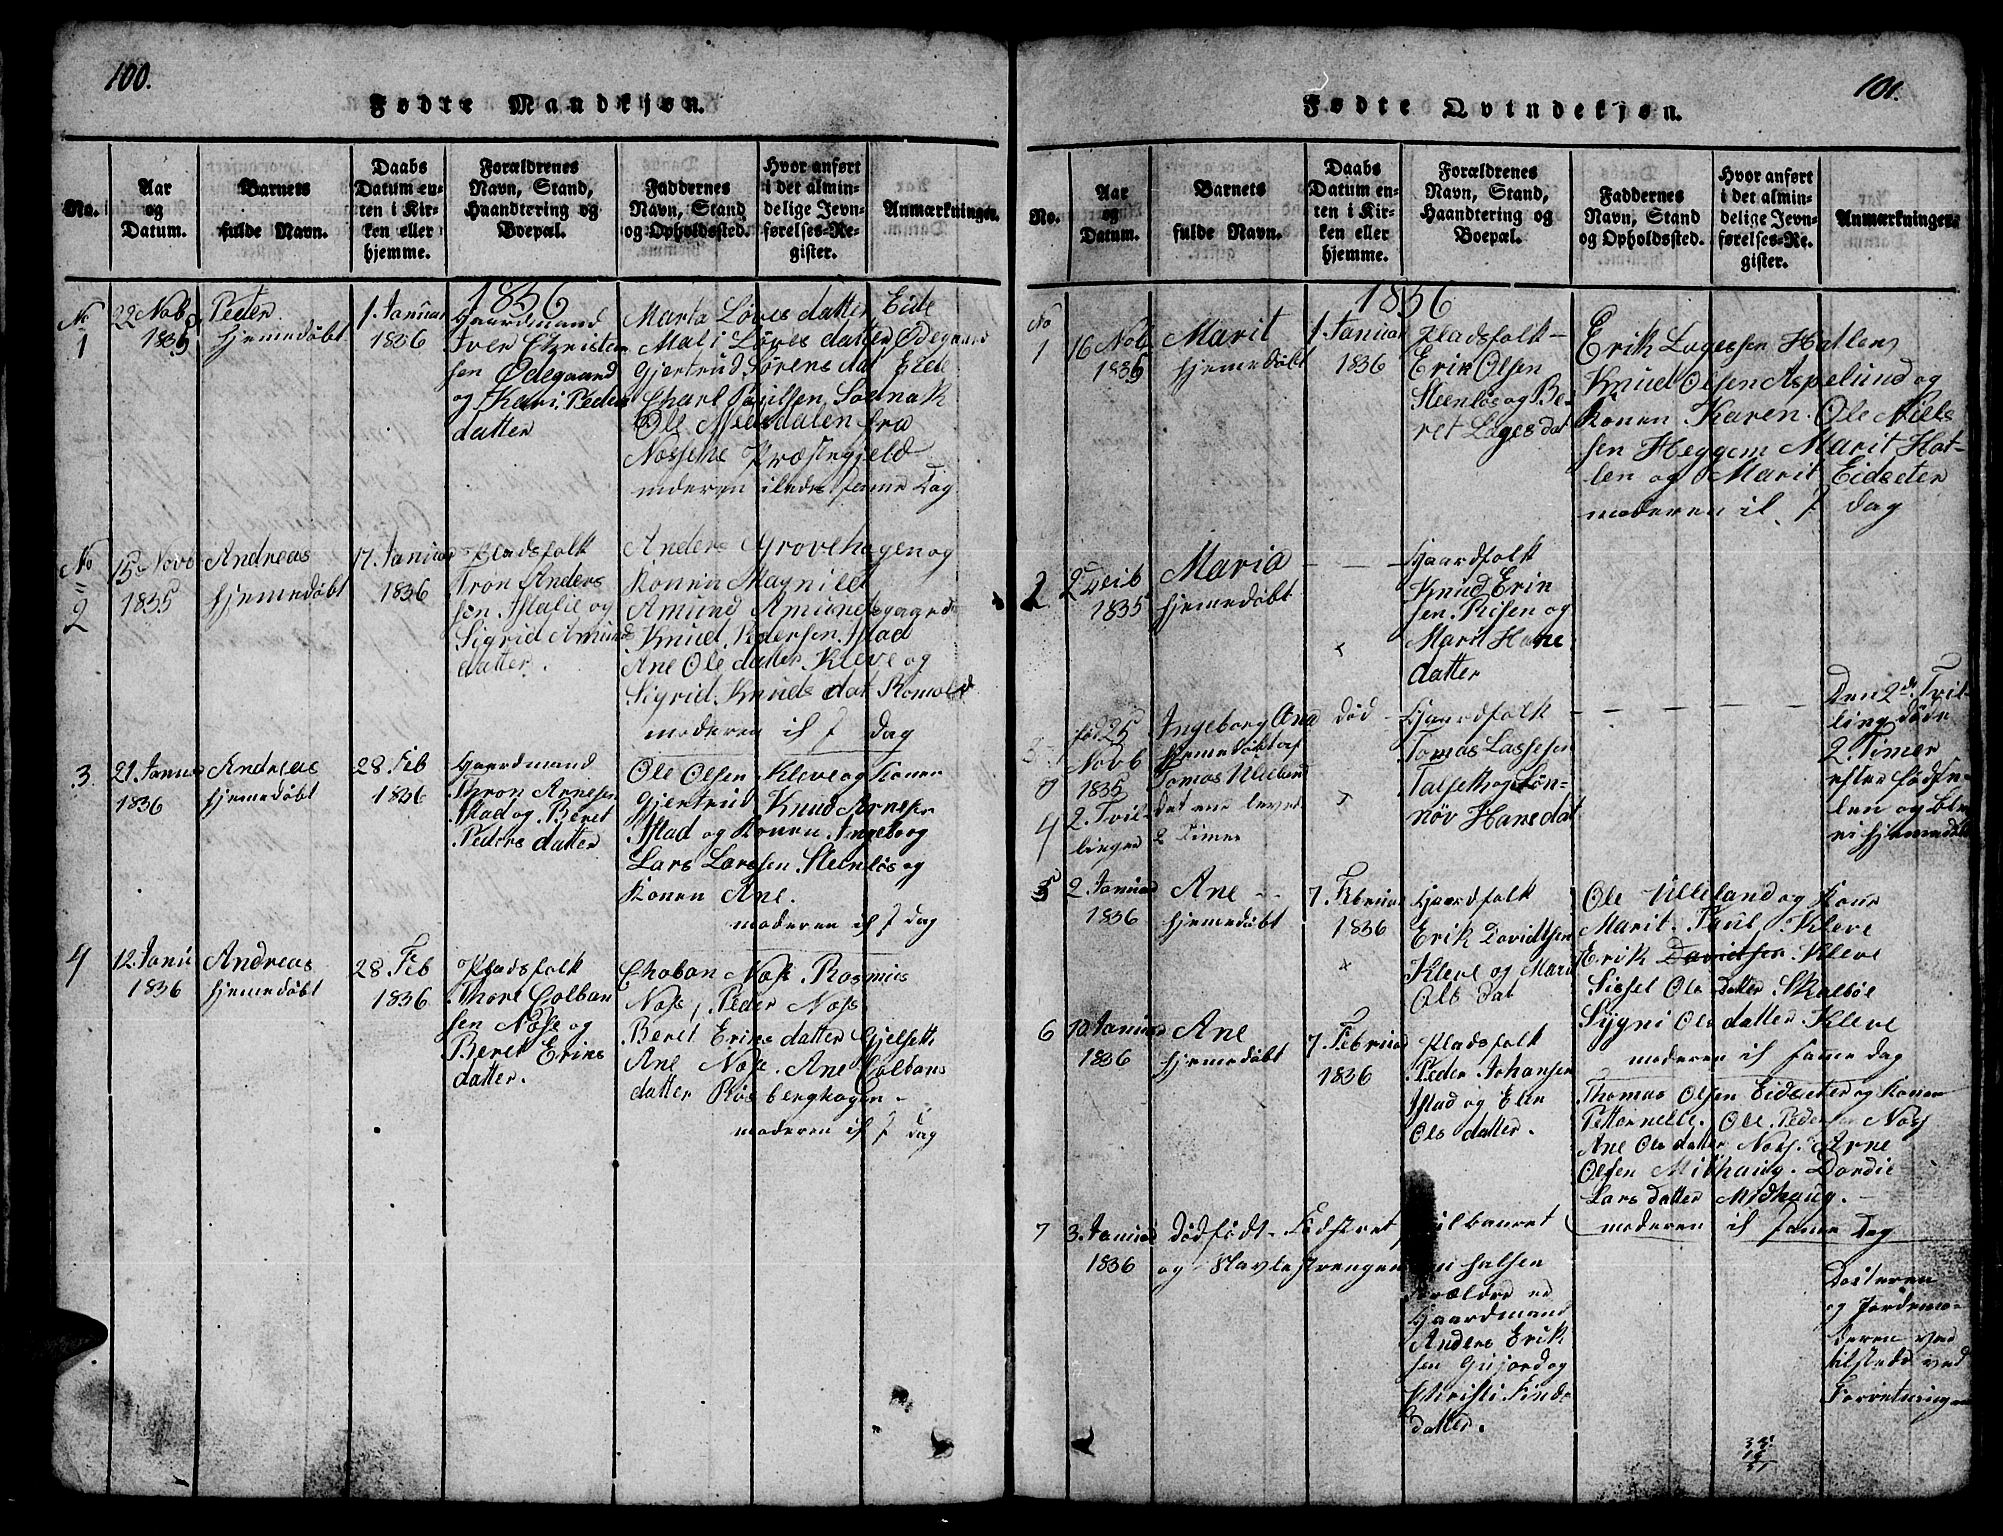 100.
Fødte Mandkjøn.
No.
Aar
og
Datum.
Barnets
fulde Navn.
Daabs
Datum en-
ten i Kir-
ken eller
hjemme.
Forældrenes
Navn, Stand,
Haandtering og
Boepæl.
Faddernes
Navn, Stand
og Opholdssted.
Hvor anført
i det almin-
delige Jevn-
førelses-Re-
gister.
Anmærkninger.
1836
No
1
22 Novb
1835
Peder
hjemedøbt
1. Januar
1836
Gaardmand
Iver Christen
sen Ødegaard
og Kari Peders
datter
Marta Løves datter Eide
Mali Løves datter Ødegaard
Gjertrud Sørens dat Eide
Charl Poulsen Sognak
Ole Miesdalen fra
Nossene Præstegjeld
moderen iledes same Dag
No
2
15 Novb
1835
Andreas
hjemedøbt
17. Januar
1836
Pladsfolk
Tron Anders
sen Istalie og
Sigrid Amund
datter.
Anders Grovehagen og
Konen Magnild
Amund Amundsgaard
Knud Pedersen Istad
Ane Ole datter Kleve og
Sigrid Knuds dat Romold
moderen il f dag
3.
21 Januar
1836
Andreas
hjemedøbt
28 Feb
1836
Gaardmand
Thron Arnesen
Istad og Beret
Peders datter
Ole Olsen Kleve og Konen
Gjertrud Knud Arnesen
Istad og Konen Ingeborg
Lars Larssen Steenløs og
Konen Ane.
moderen il f dag
4
12. Janu
1836
Andreas
hjemedøbt
28 Feb
1836
Pladsfolk
Thore Colban
sen Nøse og
Beret Eriks
datter.
Choban Nøs Rasmus
Nøs, Peder Nøs
Beret Eriks datter Gjelseth
Ane Nøs. Ane Colbans
datter Røsberghagen -
moderen il f dag
101.
Fødte Qvindekjøn.
No.
Aar
og
Datum.
Barnets
fulde Navn.
Daabs
Datum en-
ten i Kir-
ken eller
hjemme.
Forældrenes
Navn, Stand,
Haandtering og
Boepæl.
Faddernes
Navn, Stand
og Opholdssted.
Hvor anført
i det almin-
delige Jevn-
førelses-Re-
gister.
Anmærkninger.
1836
No
1
16 Nob
1835
Marit
hjemedøbt
1. Januar
1836
Pladsfolk
Erik Olsen
Steenløs og Be-
ret Lages dat
Erik Lagessen Hatlen
Knud Olsen Aspelund og
konen Karen. Ole Niels
sen Heggem Marit Hat-
len og Marit Eidseter
moderen il. f dag
2
1835
Maria
hjemedøbt
Gaardfolk
Knud Erik
sen Risen og
Marit Hans
datter
3
o
4
fød 25
Novb
1835
2. Tvil-
linger
Ingeborg Ana
hjemedøbt af
Tomas Ulleland
det ene levede
2 Timer
død
Gaardfolk
Tomas Lassesen
Talseth og Søn-
növ Hans dat
Den 2de Tvil-
ling døde
2 Timer
efter Fødse-
len og blev
hjemmedøbt
5
2 Januar
1836
Ane
hjemedøbt
7 Februar
1836
Gaardfolk
Erik Davidtsen
Kleve og Mari
Ols dat
Ole Ulleland og Kone
Marit. Paul Kleve
Erik Davidsen Kleve
Sissel Ols datter Skalbøe
Sygni Ols datter Kleve
moderen il same dag
6
10 Januar
1836
Ane
hjemedøbt
7 Februar
1836
Pladsfolk
Peder Johansen
Istad og Elen
Ols datter.
Thomas Olsen Eidseter og Konen
Pettornelle. Ole Peders Nøs
Ane Ols datter Nøs. Arne
Olsen Midhaug. Dordie
Lars datter Midhaug.
moderen il same dag
7
3. Januar
1836
dødfødt - Fødstret
og Navlestrengen
til barnet
om halsen
Forældre er
Gaardmand
Anders Erik
sen Gujord og
Christi Finds
datter.
og Jordemo-
deren ved
tilstede ved
Foretningen